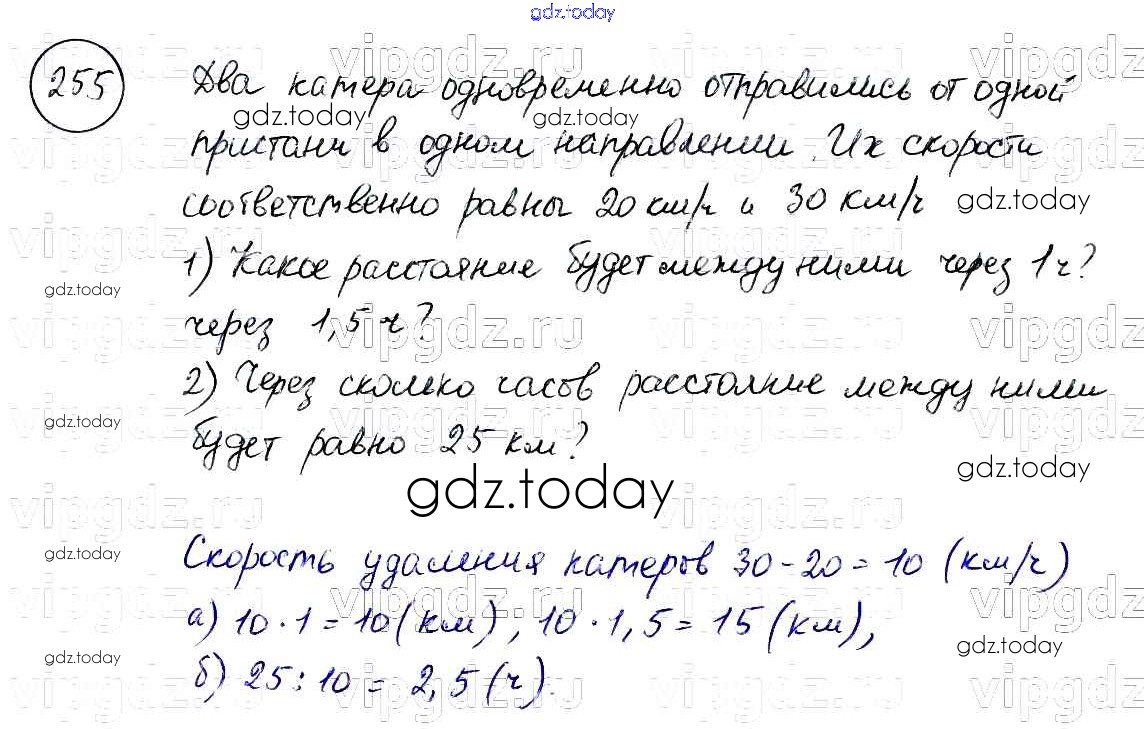 gdz.today
255
Два катера одновременно отправились от одной
gdz.today gdz.today
пристани в одном направлении. Их скорости
соответственно равны 20 км/ч и 30 км/ч
gdz.today
1) Какое расстояние будет между ними через 1 ч?
gdz.today
через 1,5 ч?
2) Через сколько часов расстояние между ними
gdz.today
будет равно 25 км?
gdz.today
gdz.today
Скорость удаления катеров 30 - 20 = 10 (км/ч)
gdz.today
а) 10 · 1 = 10 (км), 10 · 1,5 = 15 (км),
gdz.today
gdz.today
б) 25 : 10 = 2,5 (ч).
vipgdz.ru